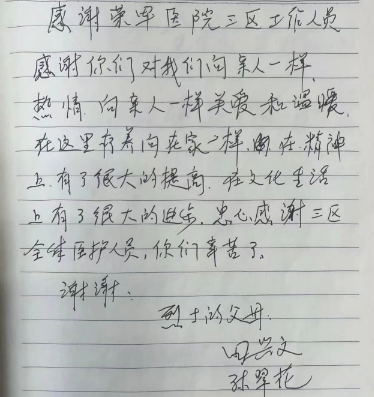 感谢荣军医院三区工作人员
感谢你们对我们向亲人一样
热情 向亲人一样关爱和温暖.
在这里存养向在家一样, 在精神
上有了很大的提高. 在文化生活
上有了很大的进步. 忠心感谢三区
全体医护人员, 你们辛苦了。
谢谢.
烈士的父母.
田兴文
张翠花